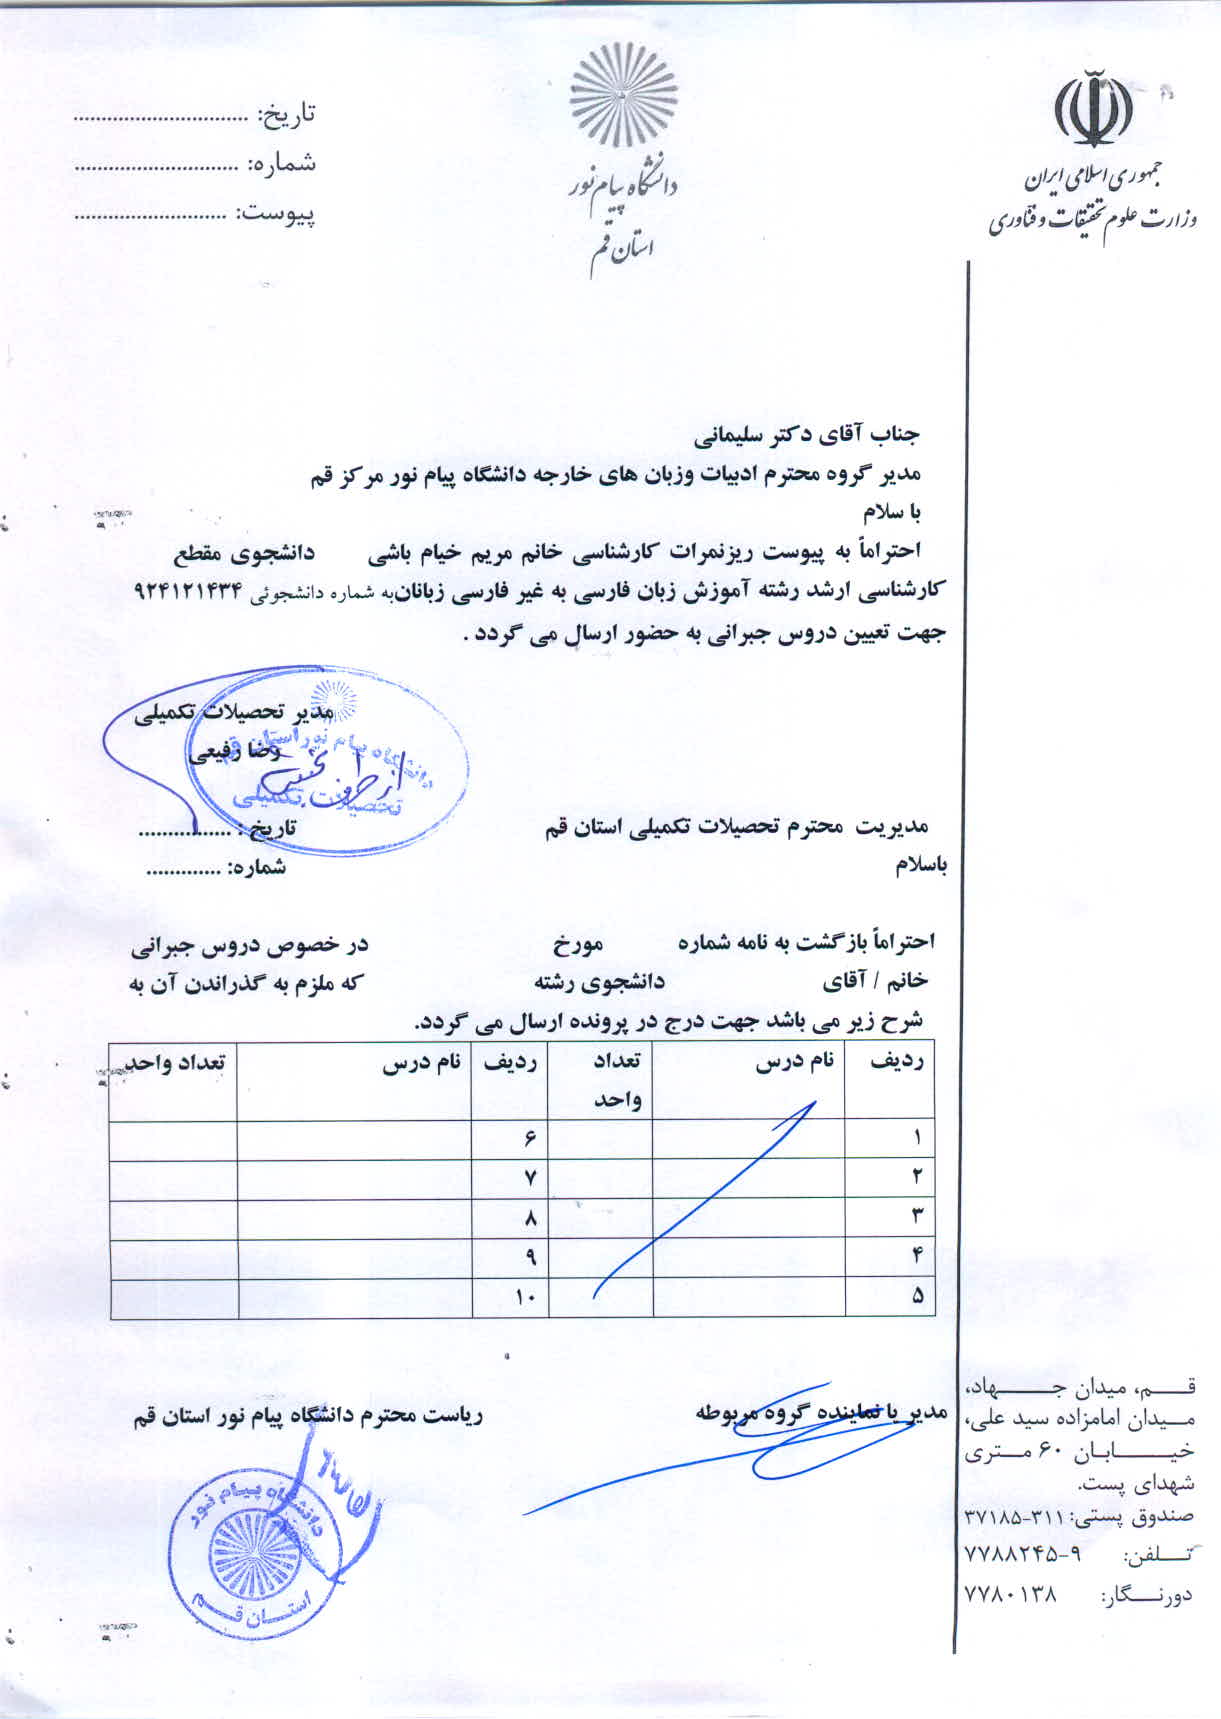 جمهوری اسلامی ایران
وزارت علوم تحقیقات و فنآوری
دانشگاه پیام نور
استان قم
تاریخ: ...............................
شماره: .............................
پیوست: ...........................
جناب آقای دکتر سلیمانی
مدیر گروه محترم ادبیات وزبان های خارجه دانشگاه پیام نور مرکز قم
با سلام
احتراماً به پیوست ریزنمرات کارشناسی خانم مریم خیام باشی دانشجوی مقطع
کارشناسی ارشد رشته آموزش زبان فارسی به غیر فارسی زبانان به شماره دانشجوئی ۹۲۴۱۲۱۴۳۴
جهت تعیین دروس جبرانی به حضور ارسال می گردد .
مدیر تحصیلات تکمیلی
رضا رفیعی
دانشگاه پیام نور استان قم
تحصیلات تکمیلی
از طرف
مدیریت محترم تحصیلات تکمیلی استان قم
تاریخ : ................
باسلام
شماره: .............
احتراماً بازگشت به نامه شماره مورخ در خصوص دروس جبرانی
خانم / آقای دانشجوی رشته که ملزم به گذراندن آن به
شرح زیر می باشد جهت درج در پرونده ارسال می گردد.
ردیف نام درس تعداد واحد ردیف نام درس تعداد واحد
۱ ۶
۲ ۷
۳ ۸
۴ ۹
۵ ۱۰
مدیر یا نماینده گروه مربوطه
ریاست محترم دانشگاه پیام نور استان قم
دانشگاه پیام نور
استان قم
قم، میدان جهاد،
میدان امامزاده سید علی،
خیابان ۶۰ متری
شهدای پست.
صندوق پستی: ۳۱۱-۳۷۱۸۵
تلفن: ۹-۷۷۸۸۲۴۵
دورنگار: ۷۷۸۰۱۳۸